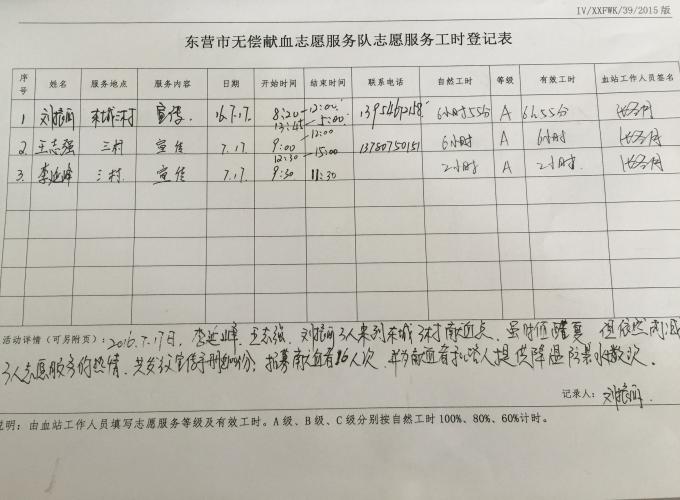 IV/XXFWK/39/2015 版
东营市无偿献血志愿服务队志愿服务工时登记表
序号 姓名 服务地点 服务内容 日期 开始时间 结束时间 联系电话 自然工时 等级 有效工时 血站工作人员签名
1 东城三村 宣传 16.7.17. 8:20 12:00 6小时55分 A 6h55分
13:45
2. 王志强 三村 宣传 7.17. 9:00 12:00 13780750151 6小时 A 6小时
12:30 15:00
3. 李延峰 三村 宣传 7.17. 9:30 11:30 2小时 A 2小时
活动详情（可另附页）：2016.7.17日，李延峰、王志强、3人来到东城三村献血点，虽时值酷夏，但依然
3人志愿服务的热情，共发放宣传手册 份；招募献血者16人次，并为献血者和 人提供降温防暑 数次。
记录人：
说明：由血站工作人员填写志愿服务等级及有效工时。A 级、B 级、C 级分别按自然工时 100%、80%、60%计时。